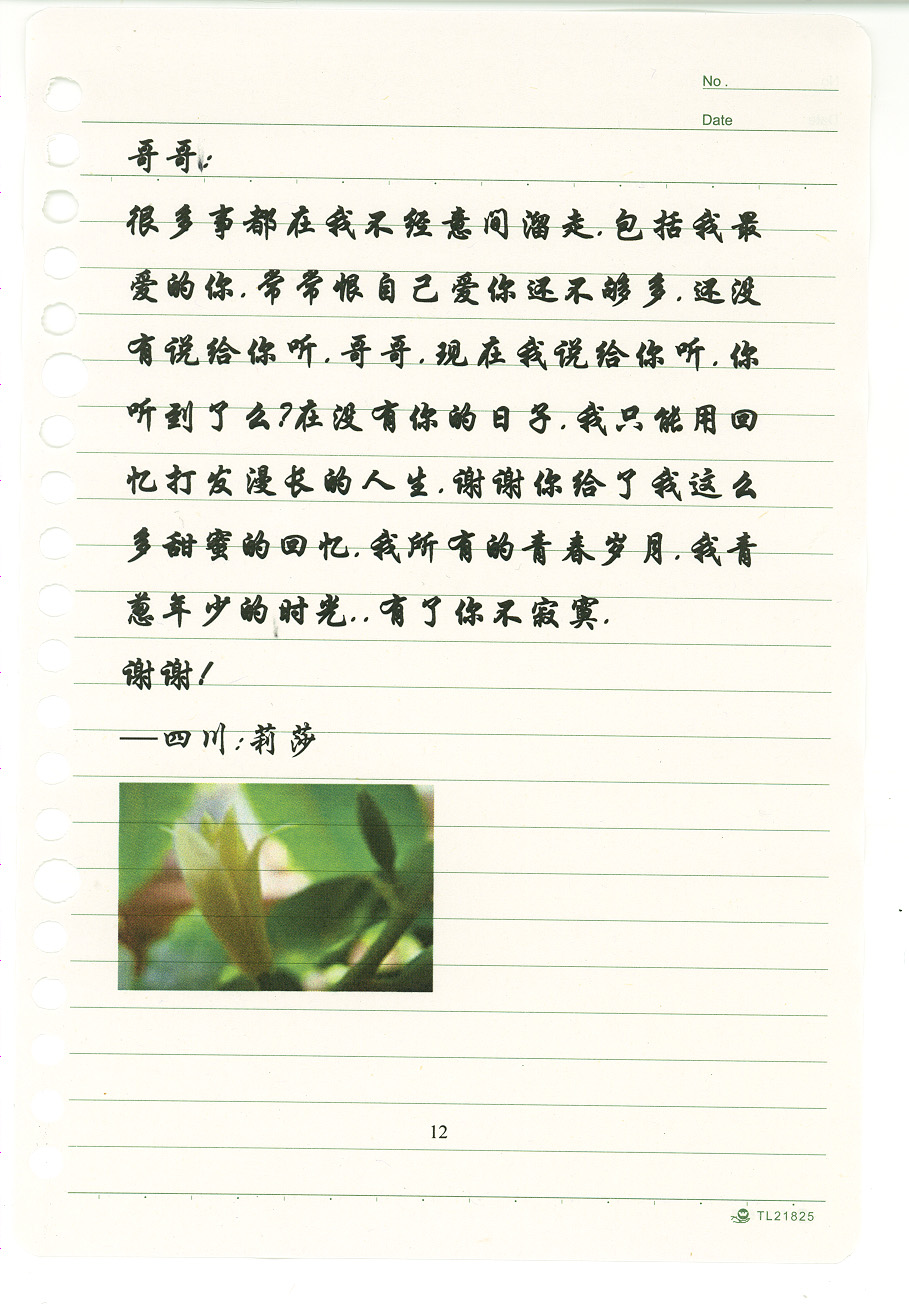 No.
Date
哥哥:
很多事都在我不经意间溜走.包括我最
爱的你.常常恨自己爱你还不够多.还没
有说给你听.哥哥.现在我说给你听.你
听到了么?在没有你的日子.我只能用回
忆打发漫长的人生.谢谢你给了我这么
多甜蜜的回忆.我所有的青春岁月.我青
葱年少的时光..有了你不寂寞.
谢谢!
—四川:莉莎
12
TL21825